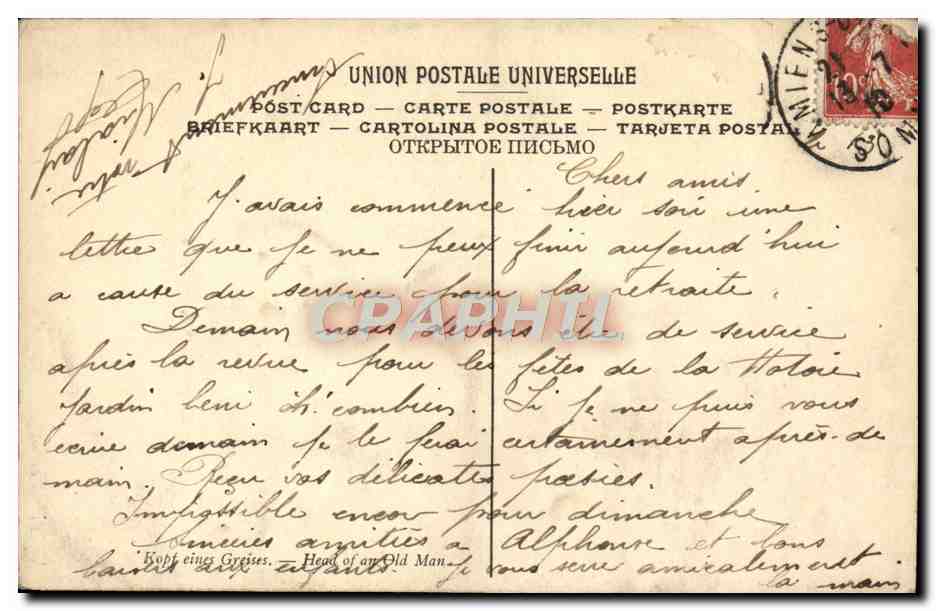 UNION POSTALE UNIVERSELLE
POST CARD — CARTE POSTALE — POSTKARTE
BRIEFKAART — CARTOLINA POSTALE — TARJETA POSTAL
ОТКРЫТОЕ ПИСЬМО
AMIENS
Chers amis.
J'avais commencé hier soir une
lettre que je ne peux finir aujourd'hui
a cause du service pour la retraite.
Demain nous devons être de service
après la revue pour les fêtes de la Hotoie
jardin beni oh! combien. Si je ne puis vous
ecrire demain je le ferai certainement après-de
main. Reçu vos délicates poésies.
Impossible encor pour dimanche
amitiés a Alphonse et bons
baisers aux enfants. Je vous serre amicalement
la main
Kopf eines Greises. — Head of an Old Man.
CRAPHIL